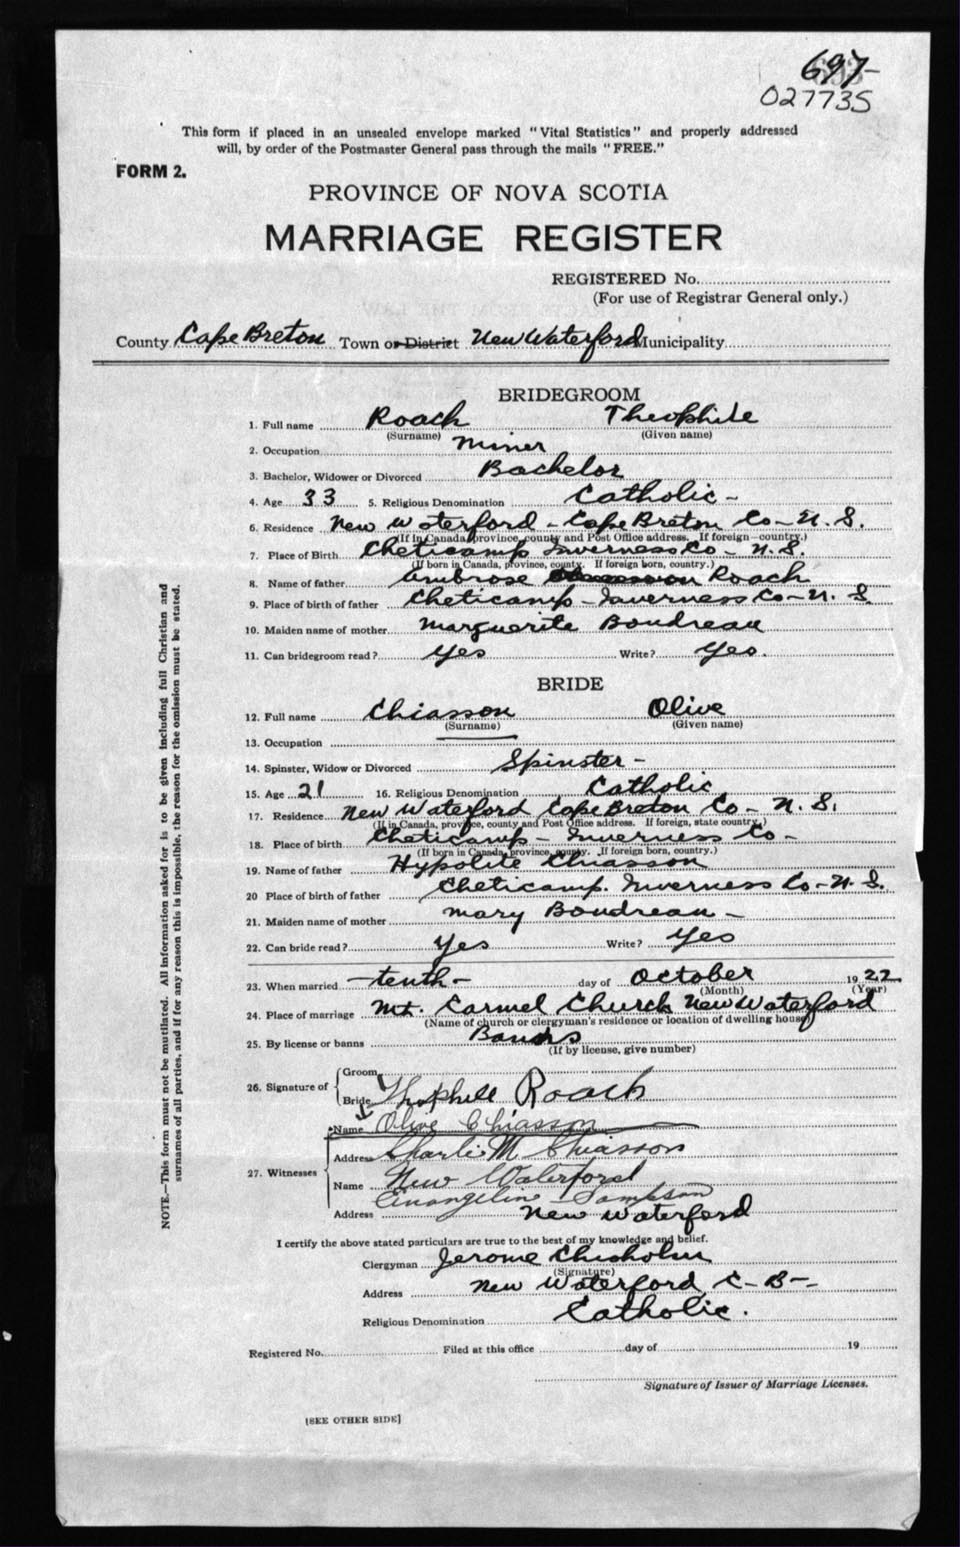 697-
027735
This form if placed in an unsealed envelope marked "Vital Statistics" and properly addressed
will, by order of the Postmaster General pass through the mails "FREE."
FORM 2.
PROVINCE OF NOVA SCOTIA
MARRIAGE REGISTER
REGISTERED No.
(For use of Registrar General only.)
County Cape Breton Town or District New Waterford Municipality
BRIDEGROOM
1. Full name Roach Theophile
(Surname) (Given name)
2. Occupation Miner
3. Bachelor, Widower or Divorced Bachelor
4. Age 33 5. Religious Denomination Catholic -
6. Residence New Waterford - Cape Breton Co - N. S.
(If in Canada, province, county and Post Office address. If foreign—country.)
7. Place of Birth Cheticamp Inverness Co - N. S.
(If born in Canada, province, county. If foreign born, country.)
8. Name of father Ambrose Roach
9. Place of birth of father Cheticamp - Inverness Co - N. S
10. Maiden name of mother Marguerite Boudreau
11. Can bridegroom read? Yes Write? Yes.
BRIDE
12. Full name Chiasson Olive
(Surname) (Given name)
13. Occupation
14. Spinster, Widow or Divorced Spinster -
15. Age 21 16. Religious Denomination Catholic
17. Residence New Waterford Cape Breton Co - N. S.
(If in Canada, province, county and Post Office address. If foreign, state country.)
18. Place of birth Cheticamp - Inverness Co -
(If born in Canada, province, county. If foreign born, country.)
19. Name of father Hypolite Chiasson
20 Place of birth of father Cheticamp. Inverness Co - N. S.
21. Maiden name of mother Mary Boudreau -
22. Can bride read? Yes Write? Yes
23. When married -tenth- day of October 1922
(Month) (Year)
24. Place of marriage Mt. Carmel Church New Waterford
(Name of church or clergyman's residence or location of dwelling house)
25. By license or banns Banns
(If by license, give number)
26. Signature of Groom
Bride Roach
Name Olive Chiasson
27. Witnesses Address Charlie M Chiasson
Name New Waterford
Evangeline Sampson
Address New Waterford
I certify the above stated particulars are true to the best of my knowledge and belief.
Clergyman Jerome Chisholm
(Signature)
Address New Waterford C - B -
Religious Denomination Catholic.
Registered No. Filed at this office day of 19
Signature of Issuer of Marriage Licenses.
[SEE OTHER SIDE]
NOTE.—This form must not be mutilated. All information asked for is to be given including full Christian and
surnames of all parties, and if for any reason this is impossible, the reason for the omission must be stated.